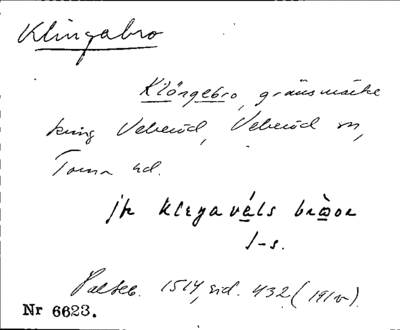 Klingabro
Klöngebro, gränsmärke
kring Veberöd, Veberöd sn,
Torna hd.
jfr klegavåls
1-s.
1514, sid. 432 (191
Nr 6623.